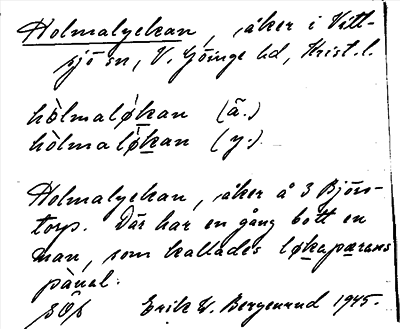 Holmalyckan, åker i Vitt-
sjö sn, V. Göinge hd, Krist. l.
hòlmaløkan (ä.)
hòlmaløkan (y.)
Holmalyckan, åker å 3 Björs-
torp. Där har en gång bott en
man, som kallades løkaparans
pànal.
Erik W. Bergenrud 1945.